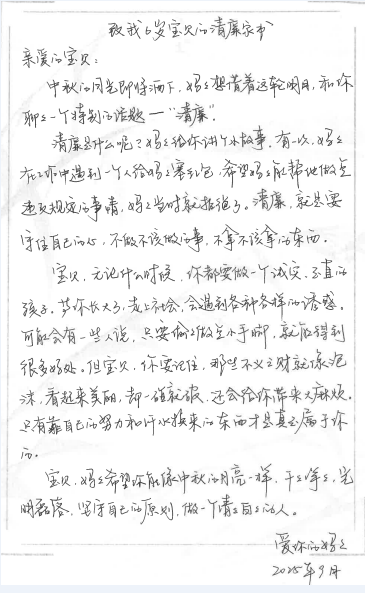 致我6岁宝贝的清廉家书
亲爱的宝贝：
中秋的月光即将洒下，妈妈想借着这轮明月，和你
聊一个特别的话题——“清廉”。
清廉是什么呢？妈妈给你讲个小故事。有一次，妈妈
在工作中遇到一个人给妈妈塞红包，希望妈妈能帮他做点
违反规定的事情，妈妈当时就拒绝了。清廉，就是要
守住自己的心，不做不该做的事，不拿不该拿的东西。
宝贝，无论什么时候，你都要做一个诚实、正直的
孩子。等你长大了，走上社会，会遇到各种各样的诱惑。
可能会有一些人说，只要偷偷做点小手脚，就能得到
很多好处。但宝贝，你要记住，那些不义之财就像泡
沫，看起来美丽，却一碰就破，还会给你带来大麻烦。
只有靠自己的努力和汗水换来的东西才是真正属于你
的。
宝贝，妈妈希望你能像中秋的月亮一样，干干净净，光
明磊落，坚守自己的原则，做一个清清白白的人。
爱你的妈妈
2025年9月